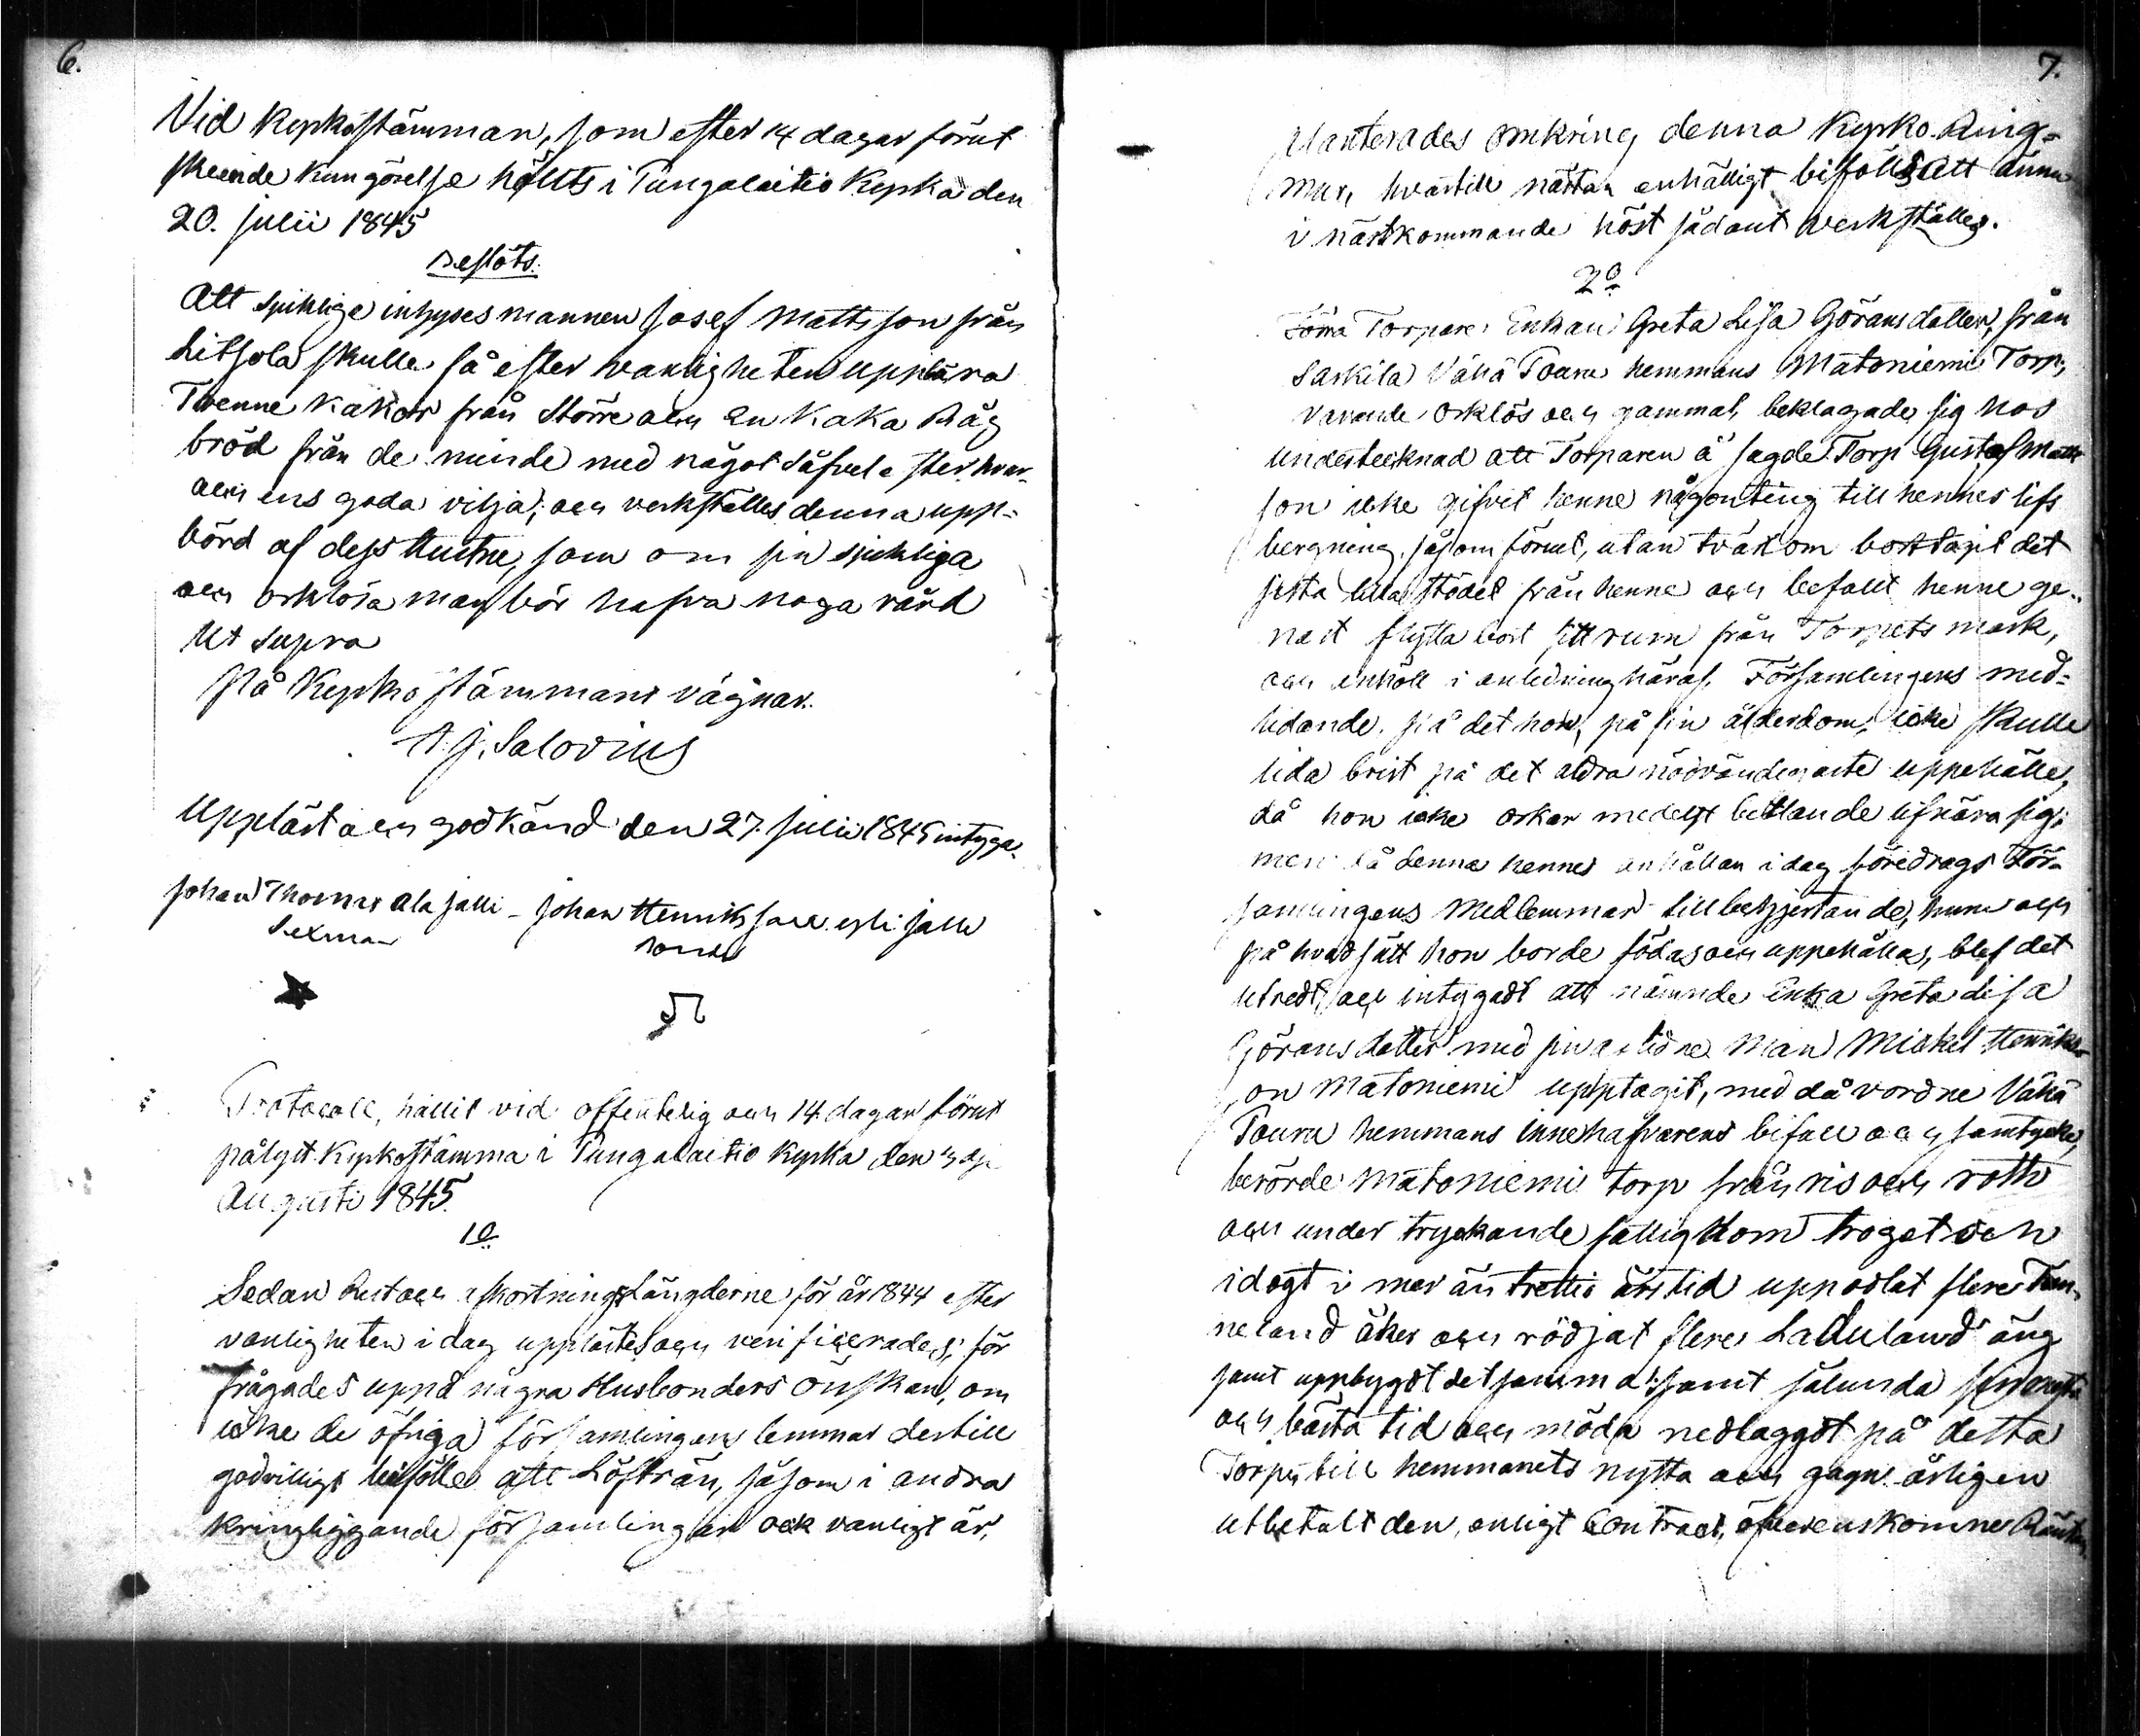 6.
Vid Kyrkostämman, som efter 14 dagar förut
skeende kungörelse hölts i Pungalaitio Kyrka den
20. Julii 1845
Beslöts:
Att sjuklige inhyses mannen Josef Mattsson från
Litsola skulle få efter vanligheten uppbära
Tvenne Kakor från Större och En Kaka Råg
bröd från de mindre med något såfvel efter hvar
och ens goda vilja; och verkställes denna upp-
börd af dess Hustru, som om sin sjukliga
och orklösa man bör hafva noga vård
Ut supra
På Kyrko stämmans vägnar.
A. J. Salovius
Uppläst och godkänd den 27. Julii 1845 intyga.
Johan Thomas Ala jalli - Johan Henriksson yli jalli
Sexman
Protocoll, hållit vid offentelig och 14 dagar förut
pålyst Kyrkostämma i Pungalaitio Kyrka den
Augusti 1845.
1o
Sedan Rest och afkortnings Längderne för år 1844 efter
vanligheten i dag upplästes och verificerades; för
frågades uppå några Husbonders önskan, om
icke de öfriga församlingens lemmar dertill
godvilligt biföllo att Löfträn, såsom i andra
kringliggande församlingar ock vanligt är,
7.
planterades omkring denna Kyrko Ring-
mur, hvartill nästan enhälligt biföllS att ännu
i nästkommande höst sådant verkställes.
2o
Förra Torpare Enkan Greta Lisa Göransdotter, från
Sarkila Vähä Touru hemmans Matoniemi Torp,
varande orklös och gammal, beklagade sig hos
undertecknad att Torparen å sagde Torp Gustaf Matts
son icke gifvit henne någonting till hennes lifs
bergning, såsom förut, utan tvärtom borttagit det
sista lilla stödet från henne och befallt henne ge-
nast flytta bort sitt rum från Torpets mark,
och anhöll i anledning häraf, Församlingens med-
lidande, på det hon, på sin ålderdom, icke skulle
lida brist på det aldra nödvändigaste uppehälle,
då hon icke orkar medelst bettlande lifnära sig;
men då denna hennes anhållan i dag föredrogs För-
samlingens Medlemmar till behjertande, huru och
på hvad sätt hon borde födas och uppehållas, blef det
utredt och intygadt att nämnde Enka Greta Lisa
Görans dotter med sin aflidne Man Michel Henriks-
son Matoniemi upptagit, med då vordne Vähä
Touru hemmans innehafvarens bifall och samtycke,
berörde Matoniemi torp från ris och rötter
och under tryckande fattigdom troget och
idogt i mer än trettio års tid uppodlat flere Tun-
neland åker och rödjat flere Laduland äng
samt uppbygdt detsamma; samt sålunda
och bästa tid och möda nedlaggdt på detta
Torp, till hemmanets nytta och gagn årligen
utbetalt den, enligt Contract, öfverenskomne Räntan,